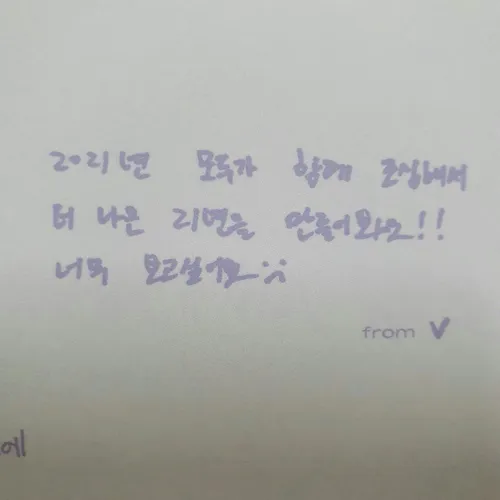 2021년 모두가 함께 조심해서
더 나은 21년을 만들어봐요!!
너무 보고싶어요 :(
from V
에